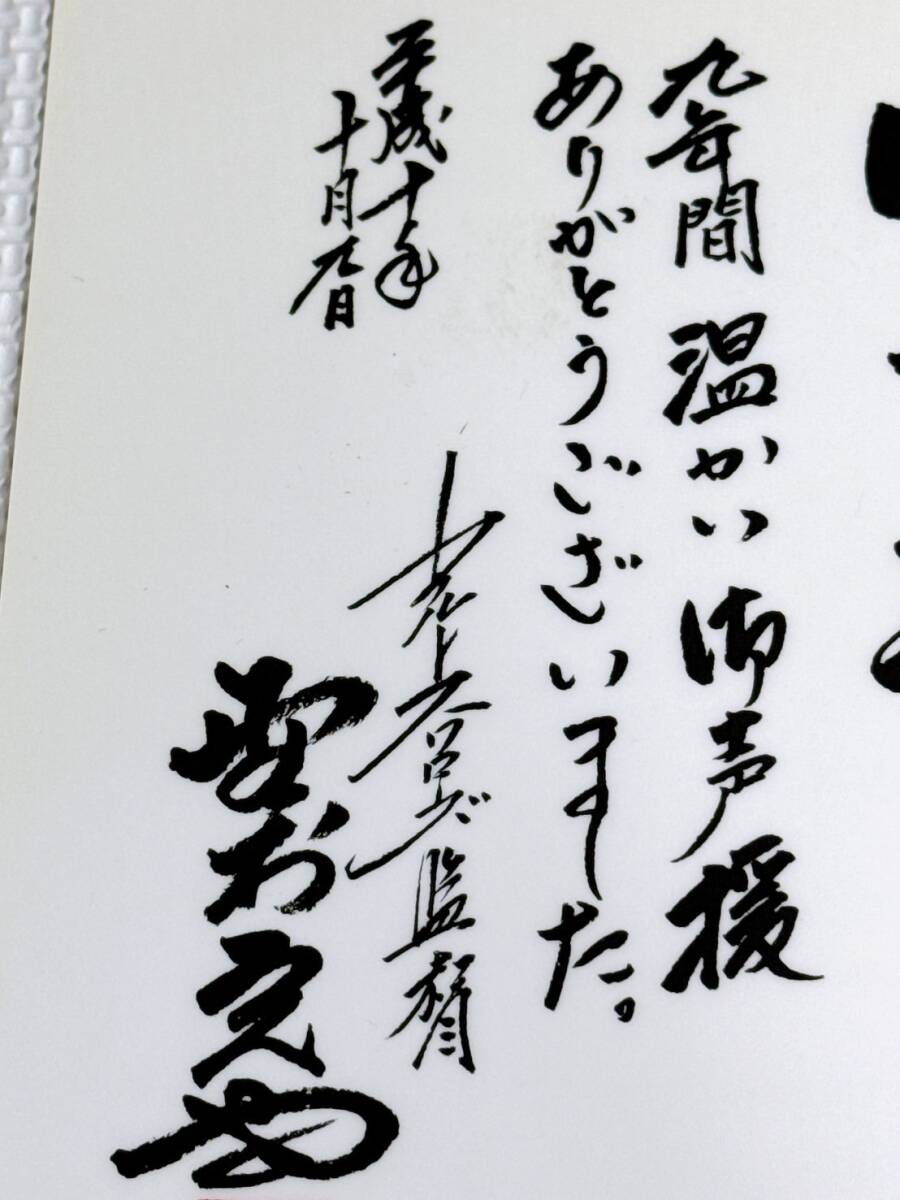 九年間 温かい御声援
ありがとうございました。
平成十年
十月九日
ヤクルトスワローズ監督
野村克也